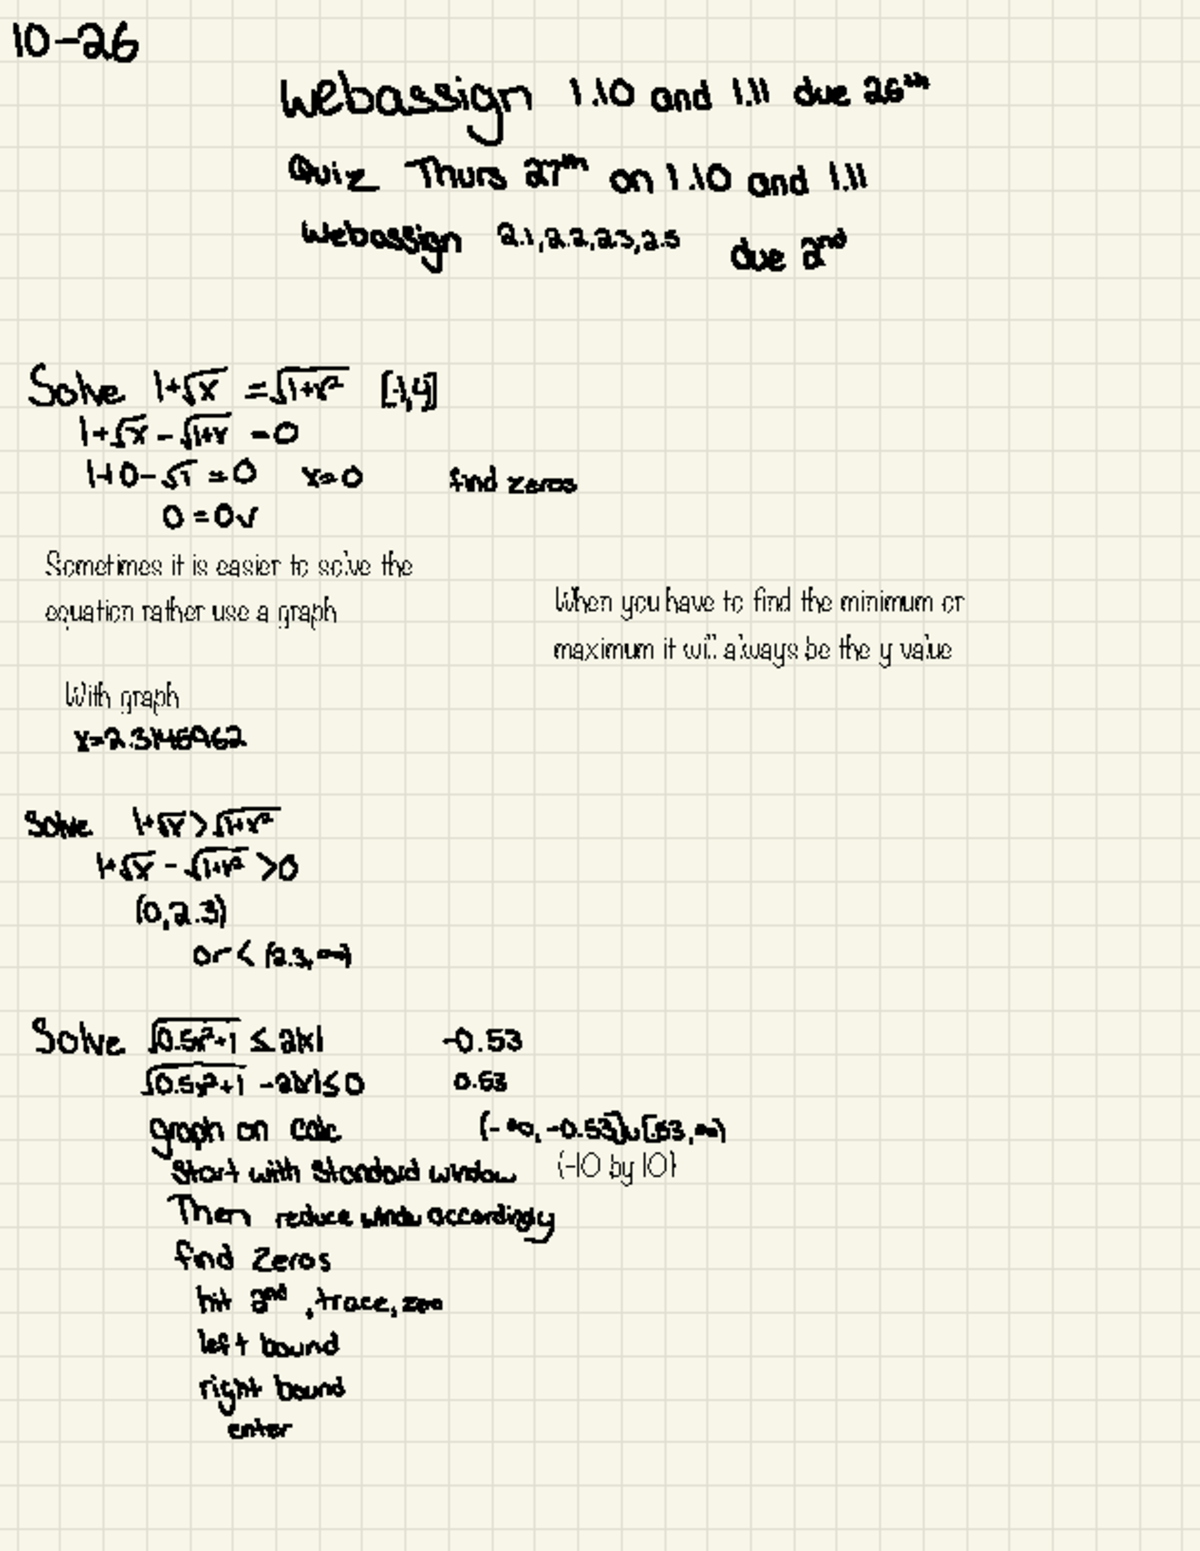 10-26
Webassign 1.10 and 1.11 due 26th
Quiz Thurs 27th on 1.10 and 1.11
Webassign 2.1,2.2,2.3,2.5 due 2nd
Solve 1+√x = √1+x² [-1,4]
1+√x - √1+x = 0
1+0-√1 = 0 x=0 find zeros
0 = 0✓
Sometimes it is easier to solve the
equation rather use a graph
When you have to find the minimum or
maximum it will always be the y value
With graph
x=2.3145962
Solve 1+√x > √1+x²
1+√x - √1+x² > 0
(0,2.3)
or < (2.3,∞)
Solve √0.5x²+1 ≤ 2|x| -0.53
√0.5x²+1 - 2|x| ≤ 0 0.53
graph on calc (-∞,-0.53]∪[.53,∞)
Start with standard window (-10 by 10)
Then reduce window accordingly
find zeros
hit 2nd, trace, zero
left bound
right bound
enter